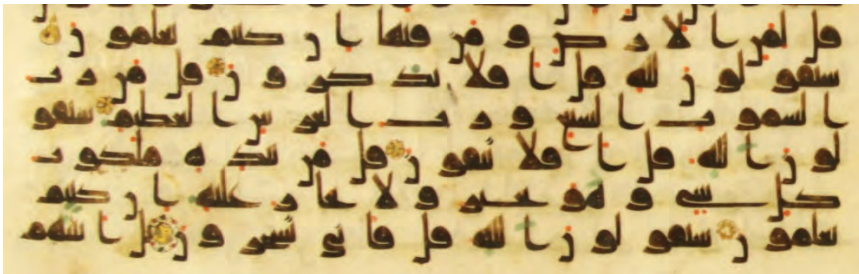 قل لمن الارض ومن فيها ان كنتم تعلمون
سيقولون لله قل افلا تذكرون قل من رب
السموت السبع ورب العرش العظيم سيقو
لون الله قل افلا تتقون قل من بيده ملكوت
كل شي وهو يجير ولا يجار عليه ان كنتم
تعلمون سيقولون الله قل فانى تسحرون بل اتينهم